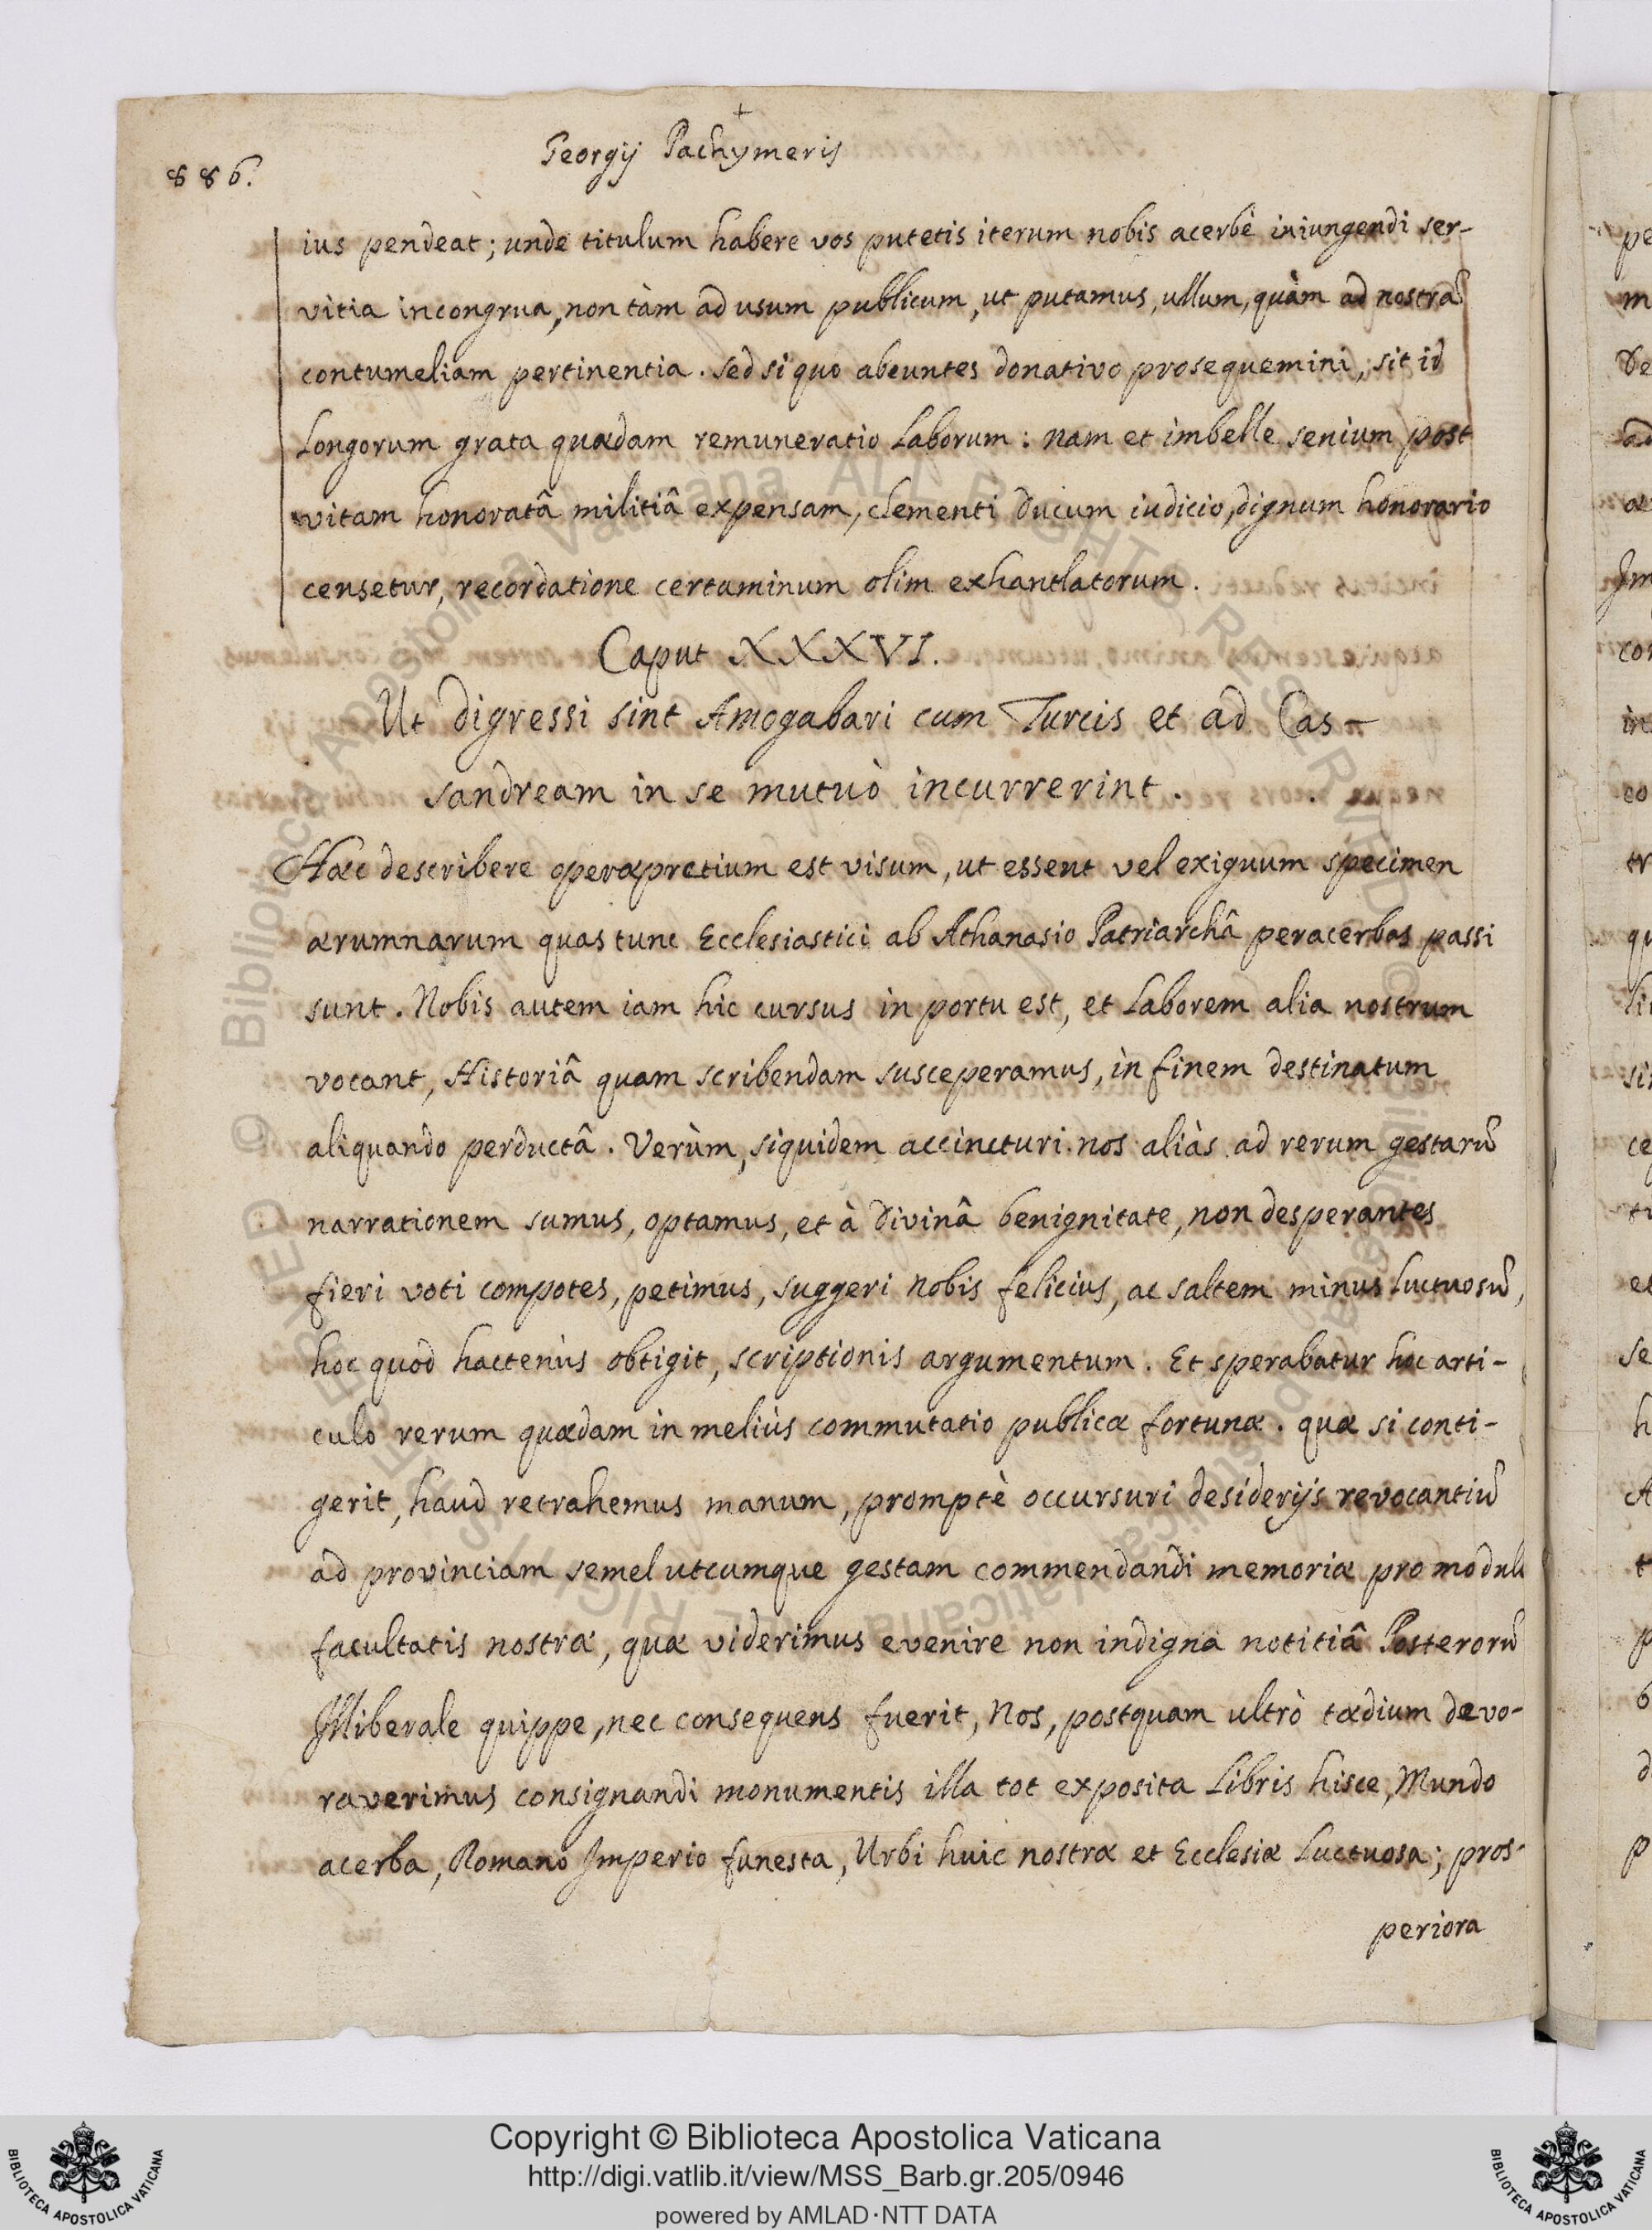 +
886.
Georgij Pachymeris
ius pendeat; unde titulum habere vos putetis iterum nobis acerbè iniungendi ser-
vitia incongrua, non tàm ad usum publicum, ut putamus, ullum, quàm ad nostrã
contumeliam pertinentia. sed si quo abeuntes donativo prosequemini, sit id
Longorum grata quædam remuneratio Laborum: nam et imbelle senium post
vitam honoratâ militiâ expensam, clementi Ducum iudicio, dignum honorario
censetur, recordatione certaminum olim exhantlatorum.
Caput XXXVI.
Ut digressi sint Amogabari cum Turcis et ad Cas-
sandream in se mutuò incurrerint.
Hæc describere operæpretium est visum, ut essent vel exiguum specimen
ærumnarum quas tunc Ecclesiastici ab Athanasio Patriarchâ peracerbas passi
sunt. Nobis autem iam hic cursus in portu est, et Laborem alia nostrum
vocant, Historiâ quam scribendam susceperamus, in finem destinatum
aliquando perductâ. Verùm, siquidem accincturi nos aliàs ad rerum gestarũ
narrationem sumus, optamus, et à divinâ benignitate, non desperantes
fieri voti compotes, petimus, suggeri nobis felicius, ac saltem minus Luctuosũ,
hoc quod hactenùs obtigit, scriptionis argumentum. Et sperabatur hoc arti-
culo rerum quædam in meliùs commutatio publicæ fortunæ. quæ si conti-
gerit, haud retrahemus manum, promptè occursuri desiderijs revocantiũ
ad provinciam semel utcumque gestam commendandi memoriæ pro modulo
facultatis nostræ, quæ viderimus evenire non indigna notitiâ Posterorũ
Illiberale quippe, nec consequens fuerit, Nos, postquam ultrò tædium devo-
raverimus consignandi monumentis illa tot exposita Libris hisce, Mundo
acerba, Romano Imperio funesta, Urbi huic nostræ et Ecclesiæ Luctuosa; pros-
periora
Copyright © Biblioteca Apostolica Vaticana
http://digi.vatlib.it/view/MSS_Barb.gr.205/0946
powered by AMLAD·NTT DATA
BIBLIOTECA APOSTOLICA VATICANA
BIBLIOTECA APOSTOLICA VATICANA